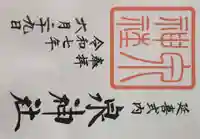 延喜式内
泉神社
奉拝
令和七年
六月二十九日